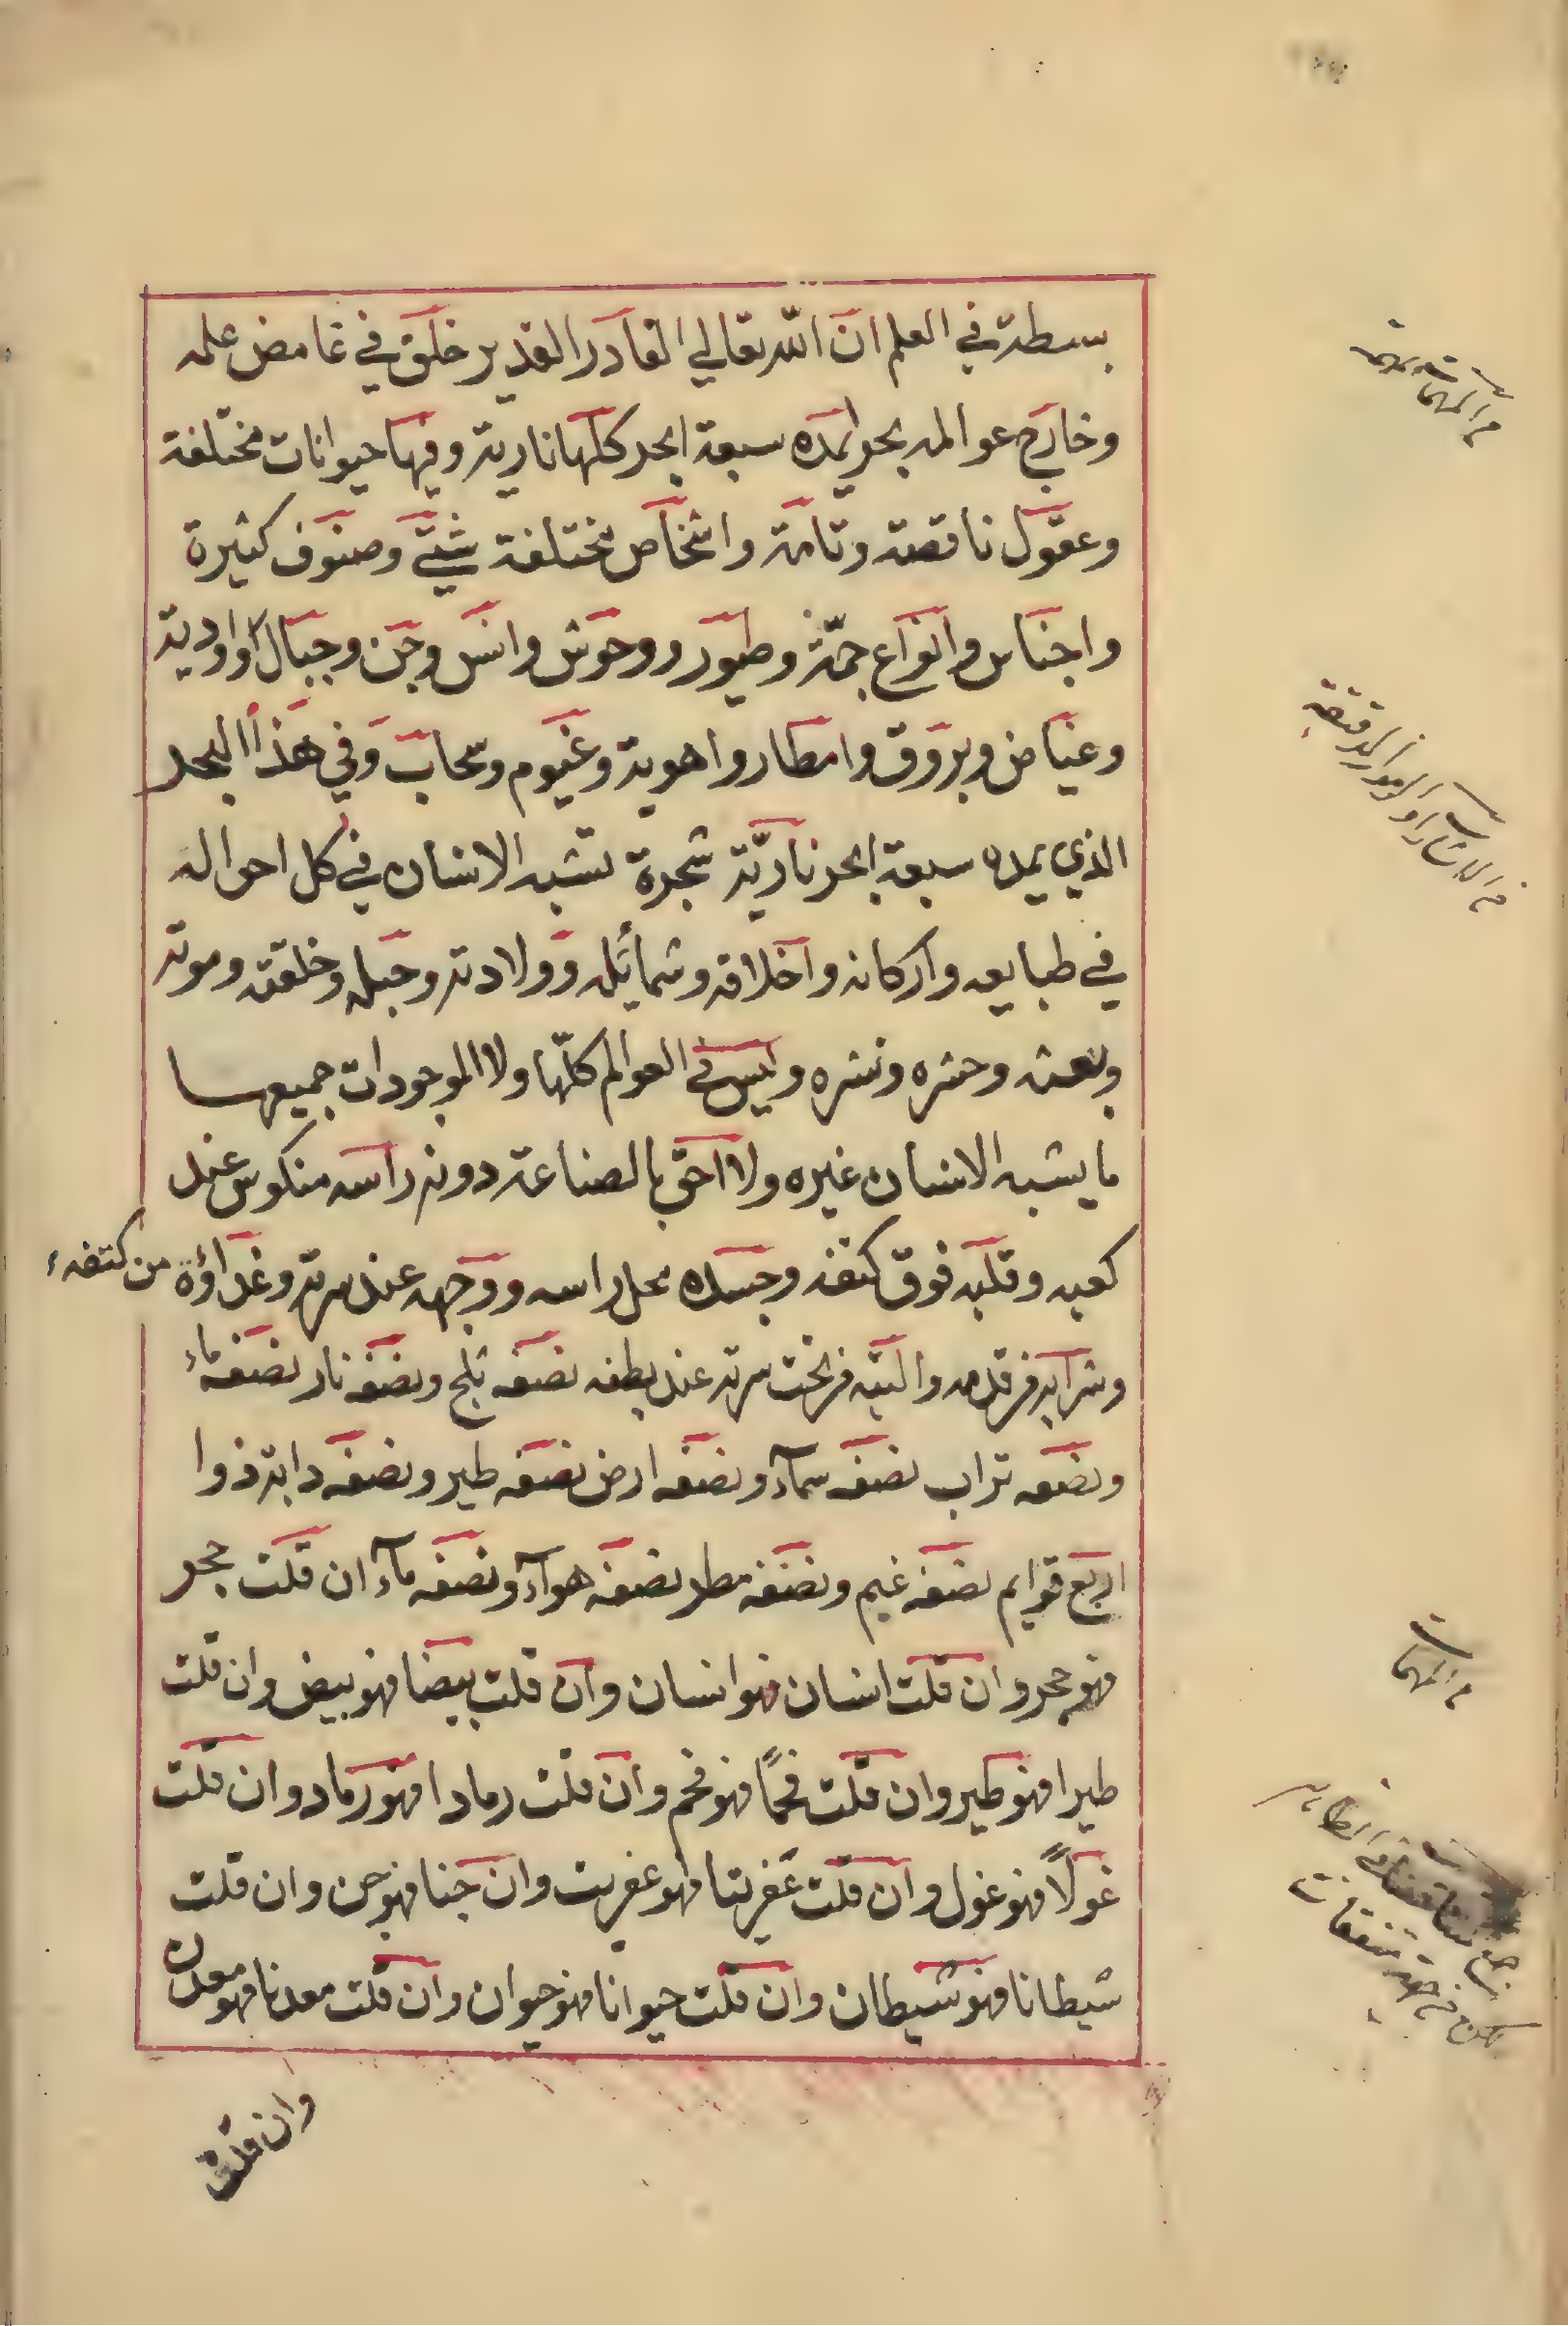 بسطة في العلم ان الله تعالي القادر القدير خلق في غامض علمه
وخارج عوالمه بحر يمده سبعة ابحر كلها نارية وفيها حيوانات مختلفة
وعقول ناقصة وتامة واشخاص مختلفة شتي وصنوف كثيرة
واجناس وانواع جمّة وطيور ووحوش وانس وجن وجبال واودية
وغياض وبروق وامطار واهوية وغيوم وسحاب وفي هذا البحر
الذي يمده سبعة ابحر ناريّة شجرة تشبه الانسان في كل احواله
في طبايعه واركانه واخلاقه وشمائله وولادته وجبله وخلقته وموته
وبعثه وحشره ونشره وليس في العوالم كلّها ولا الموجودات جميعها
ما يشبه الانسان غيره ولا احق بالصناعة دونه راسه منكوس عند
كعبه وقلبه فوق كتفه وجسده محل راسه ووجهه عند سرته وغذاؤه من كتفه
وشرابه من قدمه واليته من تحت سرته عند بطنه نصفه ثلج ونصفه نار نصفه ماء
ونصفه تراب نصفه سمآء ونصفه ارض نصفه طير ونصفه دابة ذوا
اربع قوايم نصفه غيم ونصفه مطر نصفه هوآء ونصفه مآء ان قلت حجر
فهو حجر وان قلت انسان فهو انسان وان قلت بيضا فهو بيض وان قلت
طيرا فهو طير وان قلت فحمًا فهو فحم وان قلت رمادا فهو رماد وان قلت
غولًا فهو غول وان قلت عفريتا فهو عفريت وان جنا فهو جن وان قلت
شيطانا فهو شيطان وان قلت حيوانا فهو حيوان وان قلت معدنا فهو معدن
وان قلت
من المهمات